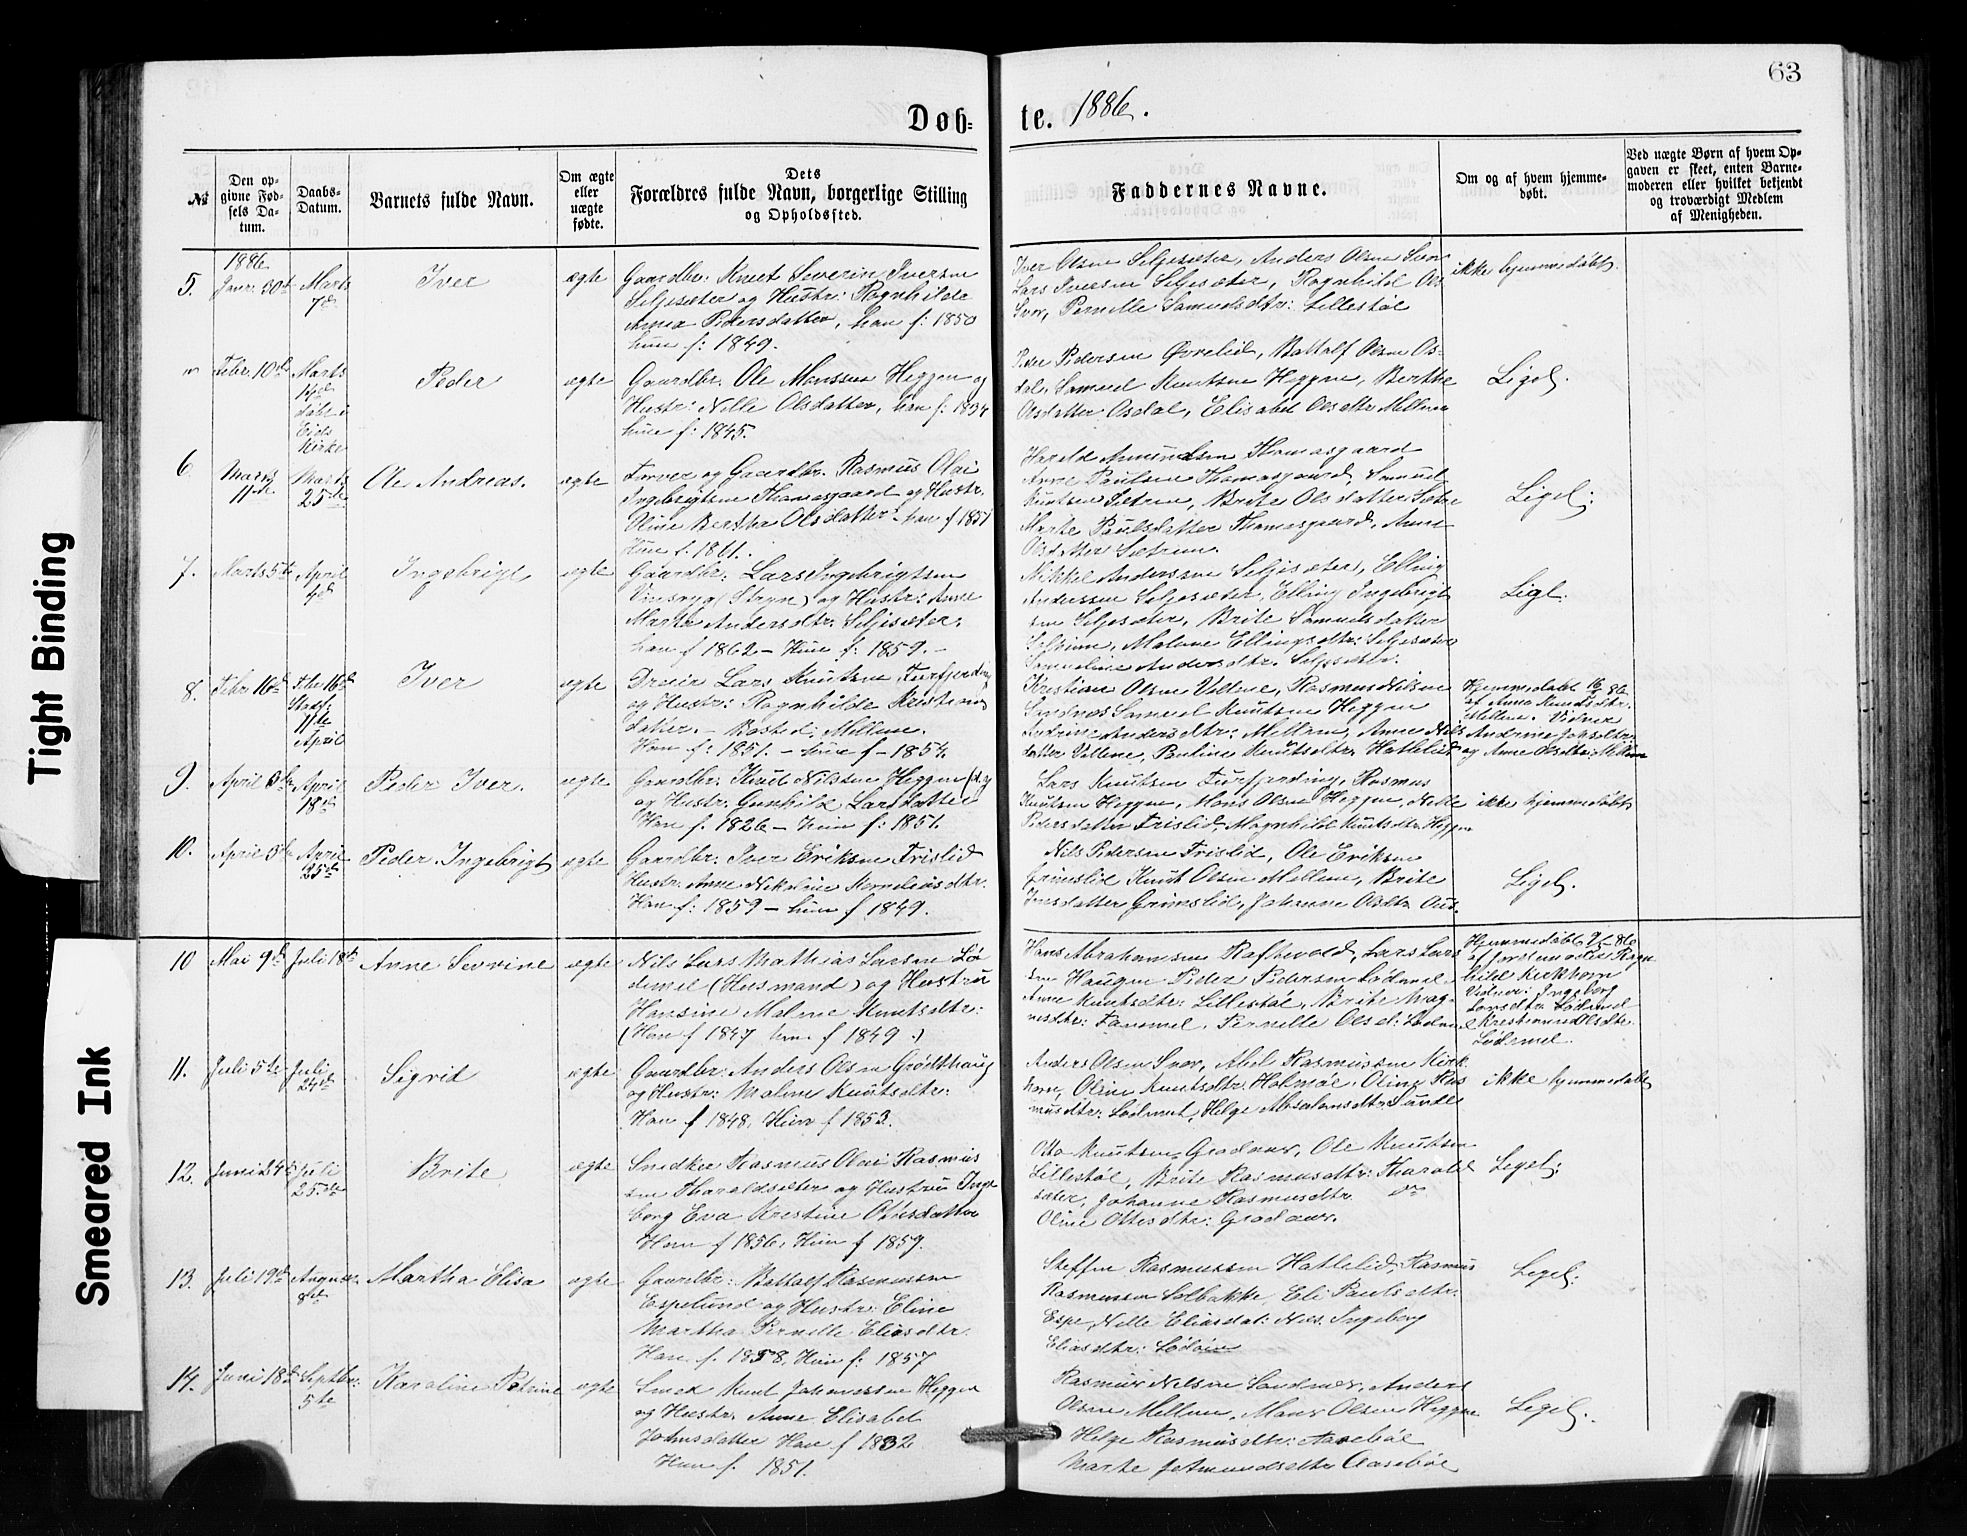 63
Døb=te. 1886.
№
Den opgivne Fødsels Datum.
Daabs-Datum.
Barnets fulde Navn.
Om ægte eller uægte fødte.
Dets Forældres fulde Navn, borgerlige Stilling og Opholdssted.
Faddernes Navne.
Om og af hvem hjemmedøbt.
Ved uægte Børn af hvem Opgaven er skeet, enten Barnemoderen eller hvilket bekjendt og troværdigt Medlem af Menigheden.
1886
5. Janr. 30te Marts 7de Iver ægte
Gaardbr: Knut Severin Iversen
Seljesæter og Hustr: Ragnhilde
Anna Pedersdatter, han f: 1850
hun f: 1849.
Iver Olsen Seljesæter, Anders Olsen Svor
Lars Iversen Seljesæter, Ragnhild Ols
Svor, Pernille Samuelsdtr: Lillestøl
ikke hjemmedøbt.
Febr. 10de Marts 14de døbt i Eids Kirke Peder ægte
Gaardbr. Ole Monssen Heggen og
Hustr: Nille Olsdatter, han f: 1834
hun f: 1845.
Peder Pedersen Øvrelid, Battalf Olsen Os-
dal, Samuel Knutsen Heggen, Berthe
Olsdatter Osdal, Elisabet Olsdtr Mellem
Ligel.
6 Marts 11te Marts 25de Ole Andreas. ægte
Farver og Gaardbr. Rasmus Olai
Ingebrigtsen Thomasgaard og Hustr.
Oline Bertha Olsdatter - han f 1857
Hun f. 1861.
Harald Amundsen Thomasgaard
Arne Paulsen Thomasgaard, Samuel
Knutsen Sætren, Brite Olsdatter Sætre
Marte Paulsdatter Thomasgaard, Anne
Olsdatter Sætrene.
Ligel:
7. Marts 5te April 4de Ingebrigt ægte
Gaardbr: Lars Ingebrigtsen
Vinsryg (Stryn) og Hustr: Anne
Marta Andersdtr: Seljesæter.
han f 1862 - Hun f: 1859. -
Mikkel Anderssen Seljesæter, Elling
Anderssen Seljesæter, Elling Ingebrigt
sen Seljesæter, Brite Samuelsdatter
Malene Ellingsdtr: Seljesæter
Samueline Andersdtr. Seljesæter.
Ligl:
8. Febr 16de Febr 16de Stadf: 11te April Iver ægte
Dreier Lars Knutsen Furfjerding
og Hustr: Ragnhilde Kristens
datter. - Bosted: Mellene.
Han f: 1851. - hun f - 1854.
Kristian Olsen Vallene, Rasmus Nilsen
Sandnes Samuel Knutsen Heggen
Andrine Andersdtr: Mellem, Anne Nils
datter Vallene, Pauline Knutsdtr. Hatlelid
Hjemmedøbt 16/2 86
af Anne Knudsdtr.
Mellene. Vidner
Andrine Johsdtr.
og Anne Olsdtr. Mellem
9. April 3de April 18de Peder Iver. ægte
Gaardbr: Knut Nilssen Heggen
og Hustr: Gunhild Larsdatter
Han f. 1826 - hun f: 1851.
Lars Knutsen Furfjerding, Rasmus
Knutsen Heggen, Mons Olsen Heggen, Nille
Pedersdatter Frislid, Magnhild Knutsdtr. Heggen
ikke hjemmedøbt
10. April 3de April 25de Peder. Ingebrigt ægte
Gaardbr: Iver Eriksen Frislid
Hustr. Anne Nikoline Korneliusdtr.
Han f: 1859 - hun f 1849.
Nils Pedersen Frislid, Ole Eriksen
Grimslid Knut Olsen Mellem, Brite
Iversdatter Grimslid, Johanne Olsdtr
Ligel.
10 Mai 9de Juli 18de Anne Sevrine ægte
Nils Lars Mathias Larsen Lø
demel (Husmand) og Hustru
Hansine Malene Knutsdtr:
(Han f 1847 hun f 1849.)
Hans Abrahamsen Raftevold, Lars Lars
sen Haugen Peder Pedersen Lødemel
Anne Knutsdtr: Lillestøl, Brite Mag-
nesdtr: Taremel. Pernille Olsd: Lødemel
Hjemmedøbt 9/5-86
af Jordemoder Ragn
hild Kirkhorn
Vidner: Ingeborg
Larsdtr. Lødemel
Kristiane Olsdtr.
Lødemel.
11. Juli 5te Juli 24de Sigrid ægte
Gaardbr: Anders Olsen Grødthaug
og Hustr: Malene Knutsdtr:
Han f 1848, Hun f 1853.
Anders Olsen Svor, Abel Rasmussen Kirk
horn, Oline Knutsdtr. Holmøe. Oline Ras
musdtr: Lødemel, Helge Absalonsdtr Sande
ikke hjemmedøbt
12. Juni 24de Juli 25de Brite ægte
Snedker Rasmus Olai Rasmus
sen Tharaldsæter og Hustru Inge
borg Eva Kristine Ottesdatter
Han f 1856, Hun f 1859.
Otto Knutsen Gradaur, Ole Knutsen
Lillestøl, Brite Rasmusdtr: Tharald
sæter, Johanne Rasmusdtr do
Oline Ottesdtr: Gradaur.
Ligel:
13. Juli 19de August 8de Martha Elisa ægte
Gaardbr: Battalf Rasmussen
Espelund og Hustr: Eline
Martha Pernille Eliasdtr.
Han f. 1858, Hun f: 1857
Steffen Rasmussen Hatlelid, Rasmus
Rasmussen Solbakke, Eli Paulsdtr.
Espe, Nille Eliasdat: Næs. Ingeborg
Eliasdtr: Lødøen
Ligel:
14. Juni 18de Septbr: 5te Karoline Petrine ægte
Smed Knut Johannessen Heggen
og Hustr. Anne Elisabet
Johnsdatter Han f 1832
Hun f. 1851.
Rasmus Nilsen Sandnes, Anders
Olsen Mellem, Mons Olsen Heggen
Helge Rasmusdtr: Aasebøe
Marte Aasebøe
Ligel.
Tight Binding
Smeared Ink